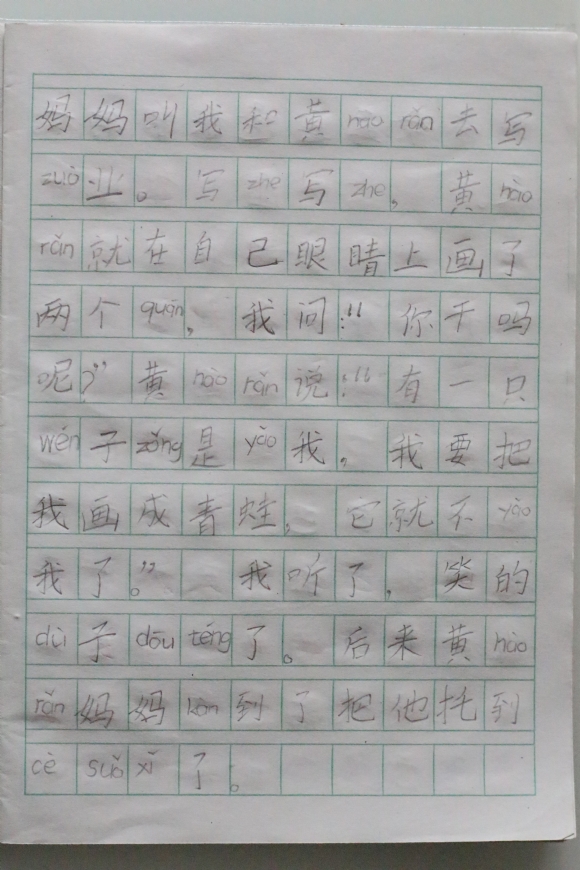 妈妈叫我和黄hào rán去写
zuò业。写zhe写zhe，黄hào
rán就在自己眼睛上画了
两个quān，我问：“你干吗
呢？”黄hào rán说：“有一只
wén子zǒng是yǎo我，我要把
我画成青蛙，它就不yǎo
我了。”我听了，笑的
dù子dōu téng了。后来黄hào
rán妈妈kàn到了把他托到
cè suǒ xǐ了。